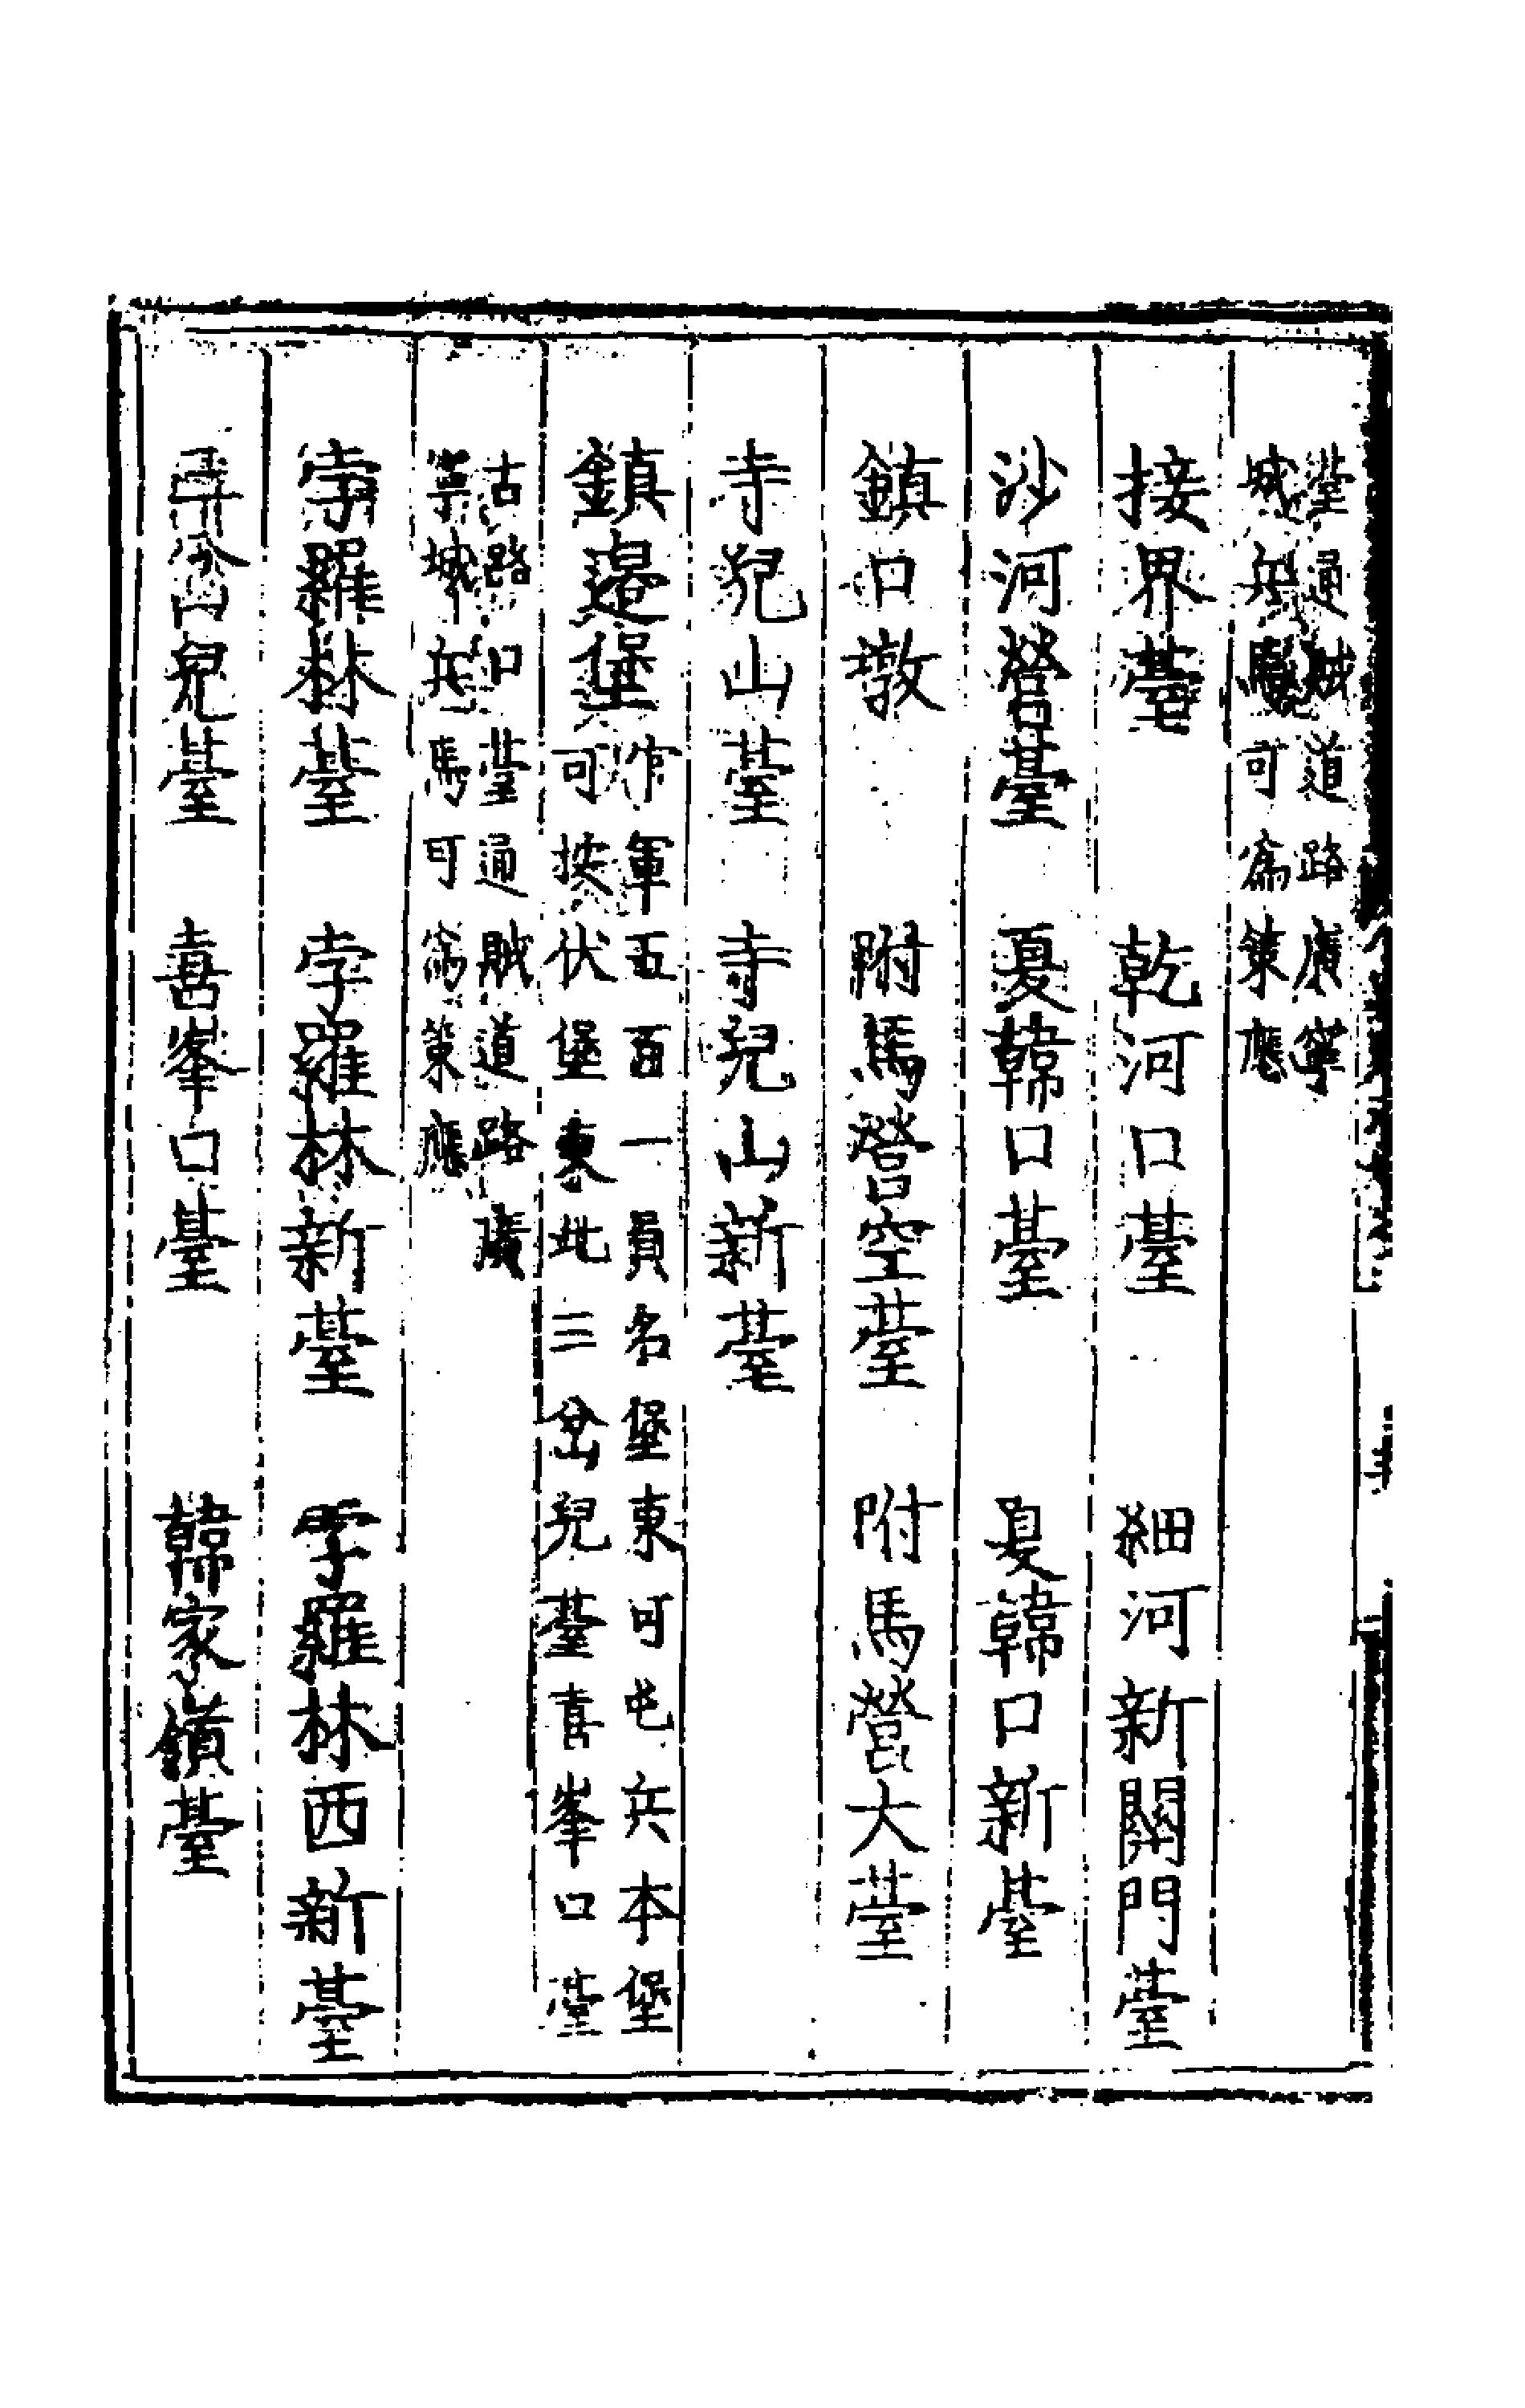 臺通賊道路廣寧
城兵馬可為策應
接界臺　乾河口臺　細河新關門臺
沙河營臺　夏韓口臺　夏韓口新臺
鎮口墩　附馬營空臺　附馬營大臺
寺兒山臺　寺兒山新臺
鎮邉堡
官軍五百一員名堡東可屯兵本堡
可按伏堡東北三岔兒臺喜峯口臺
古路口臺通賊道路廣
寧城兵馬可為策應
孛羅林臺　孛羅林新臺　孛羅林西新臺
岔兒臺　喜峯口臺　韓家嶺臺